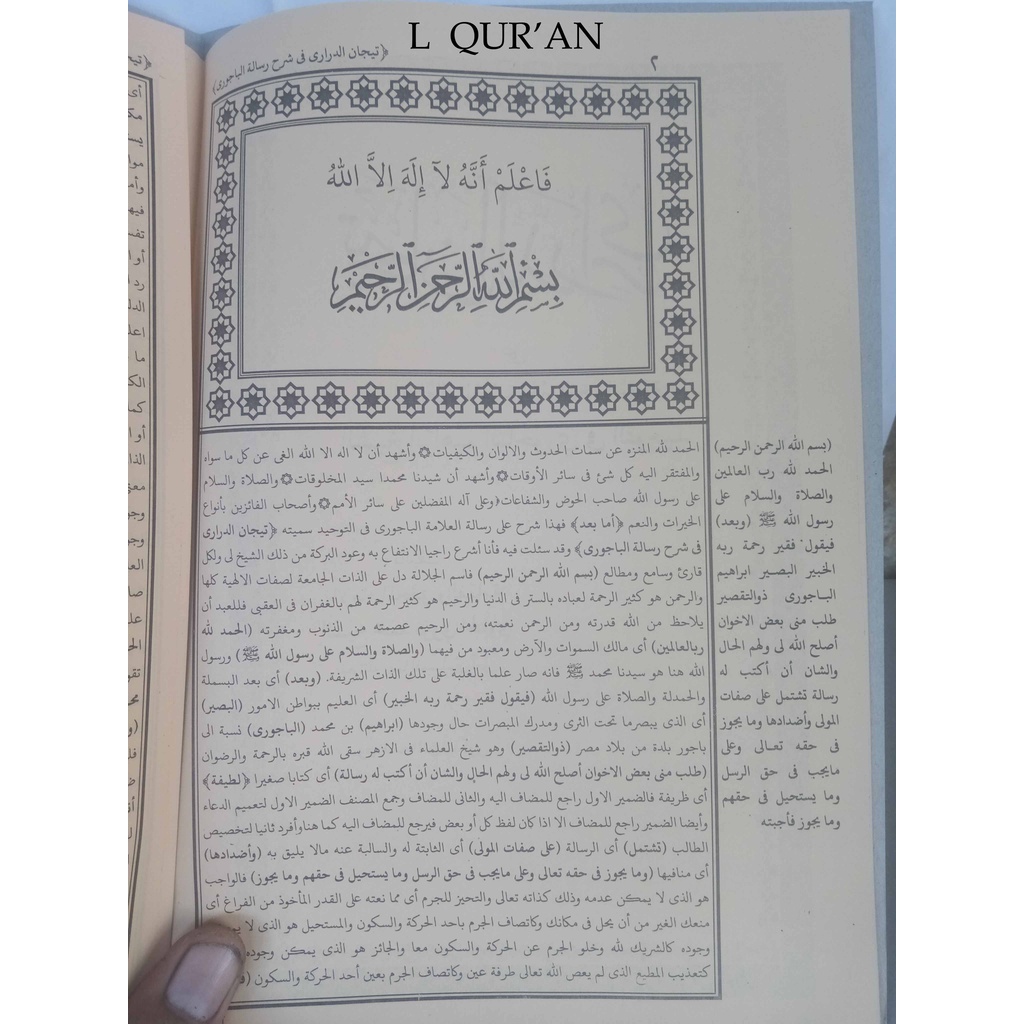 L QUR’AN
٢
﴿تيجان الدرارى فى شرح رسالة الباجورى﴾
فَاعْلَمْ أَنَّهُ لآ إِلَهَ اِلاَّ اللهُ
بِسْمِ اللهِ الرَّحْمَنِ الرَّحِيْمِ
الحمد لله المنزه عن سمات الحدوث والالوان والكيفيات۞ وأشهد أن لا اله الا الله الغى عن كل ما سواه
والمفتقر اليه كل شئ فى سائر الأوقات۞وأشهد أن شيدنا محمدا سيد المخلوقات۞والصلاة والسلام
على رسول الله صاحب الحوض والشفاعات﴿وعلى آله المفضلين على سائر الأمم۞وأصحاب الفائزين بأنواع
الخيرات والنعم ﴿أما بعد﴾ فهذا شرح على رسالة العلامة الباجورى فى التوحيد سميته ﴿تيجان الدرارى
فى شرح رسالة الباجورى﴾ وقد سئلت فيه فأنا أشرع راجيا الانتفاع به وعود البركة من ذلك الشيخ لى ولكل
قارئ وسامع ومطالع (بسم الله الرحمن الرحيم) فاسم الجلالة دل على الذات الجامعة لصفات الالهية كلها
والرحمن هو كثير الرحمة لعباده بالستر فى الدنيا والرحيم هو كثير الرحمة لهم بالغفران فى العقبى فللعبد أن
يلاحظ من الله قدرته ومن الرحمن نعمته، ومن الرحيم عصمته من الذنوب ومغفرته (الحمد لله
ربالعالمين) أى مالك السموات والآرض ومعبود من فيهما (والصلاة والسلام على رسول الله ﷺ) ورسول
الله هنا هو سيدنا محمد ﷺ فانه صار علما بالغلبة على تلك الذات الشريفة. (وبعد) أى بعد البسملة
والحمدلة والصلاة على رسول الله (فيقول فقير رحمة ربه الخبير) أى العليم ببواطن الامور (البصير)
أى الذى يبصرما تحت الثرى ومدرك المبصرات حال وجودها (ابراهيم) بن محمد (الباجورى) نسبة الى
باجور بلدة من بلاد مصر (ذوالتقصير) وهو شيخ العلماء فى الازهر سقى الله قبره بالرحمة والرضوان
(طلب منى بعض الاخوان أصلح الله لى ولهم الحال والشان أن أكتب له رسالة) أى كتابا صغيرا ﴿لطيفة﴾
أى ظريفة فالضمير الاول راجع للمضاف اليه والثانى للمضاف وجمع المصنف الضمير الاول لتعميم الدعاء
وأيضا الضمير راجع للمضاف الا اذا كان لفظ كل أو بعض فيرجع للمضاف اليه كما هناوأفرد ثانيا لتخصيص
الطالب (تشتمل) أى الرسالة (على صفات المولى) أى الثابتة له والسالبة عنه مالا يليق به (وأضدادها)
أى منافيها (وما يجوز فى حقه تعالى وعلى مايجب فى حق الرسل وما يستحيل فى حقهم وما يجوز) فالواجب
هو الذى لا يمكن عدمه وذلك كذاته تعالى والتحيز للجرم أى مما نعته على القدر المأخوذ من الفراغ أى
منعك الغير من أن يحل فى مكانك وكاتصاف الجرم باحد الحركة والسكون والمستحيل هو الذى لا
وجوده كالشريك لله وخلو الجرم عن الحركة والسكون معا والجائز هو الذى يمكن وجوده
كتعذيب المطيع الذى لم يعص الله تعالى طرفة عين وكاتصاف الجرم بعين أحد الحركة والسكون
(بسم الله الرحمن الرحيم)
الحمد لله رب العالمين
والصلاة والسلام على
رسول الله ﷺ (وبعد)
فيقول فقير رحمة ربه
الخبير البصير ابراهيم
الباجورى ذوالتقصير
طلب منى بعض الاخوان
أصلح الله لى ولهم الحال
والشان أن أكتب له
رسالة تشتمل على صفات
المولى وأضدادها وما يجوز
فى حقه تعالى وعلى
مايجب فى حق الرسل
وما يستحيل فى حقهم
وما يجوز فأجبته